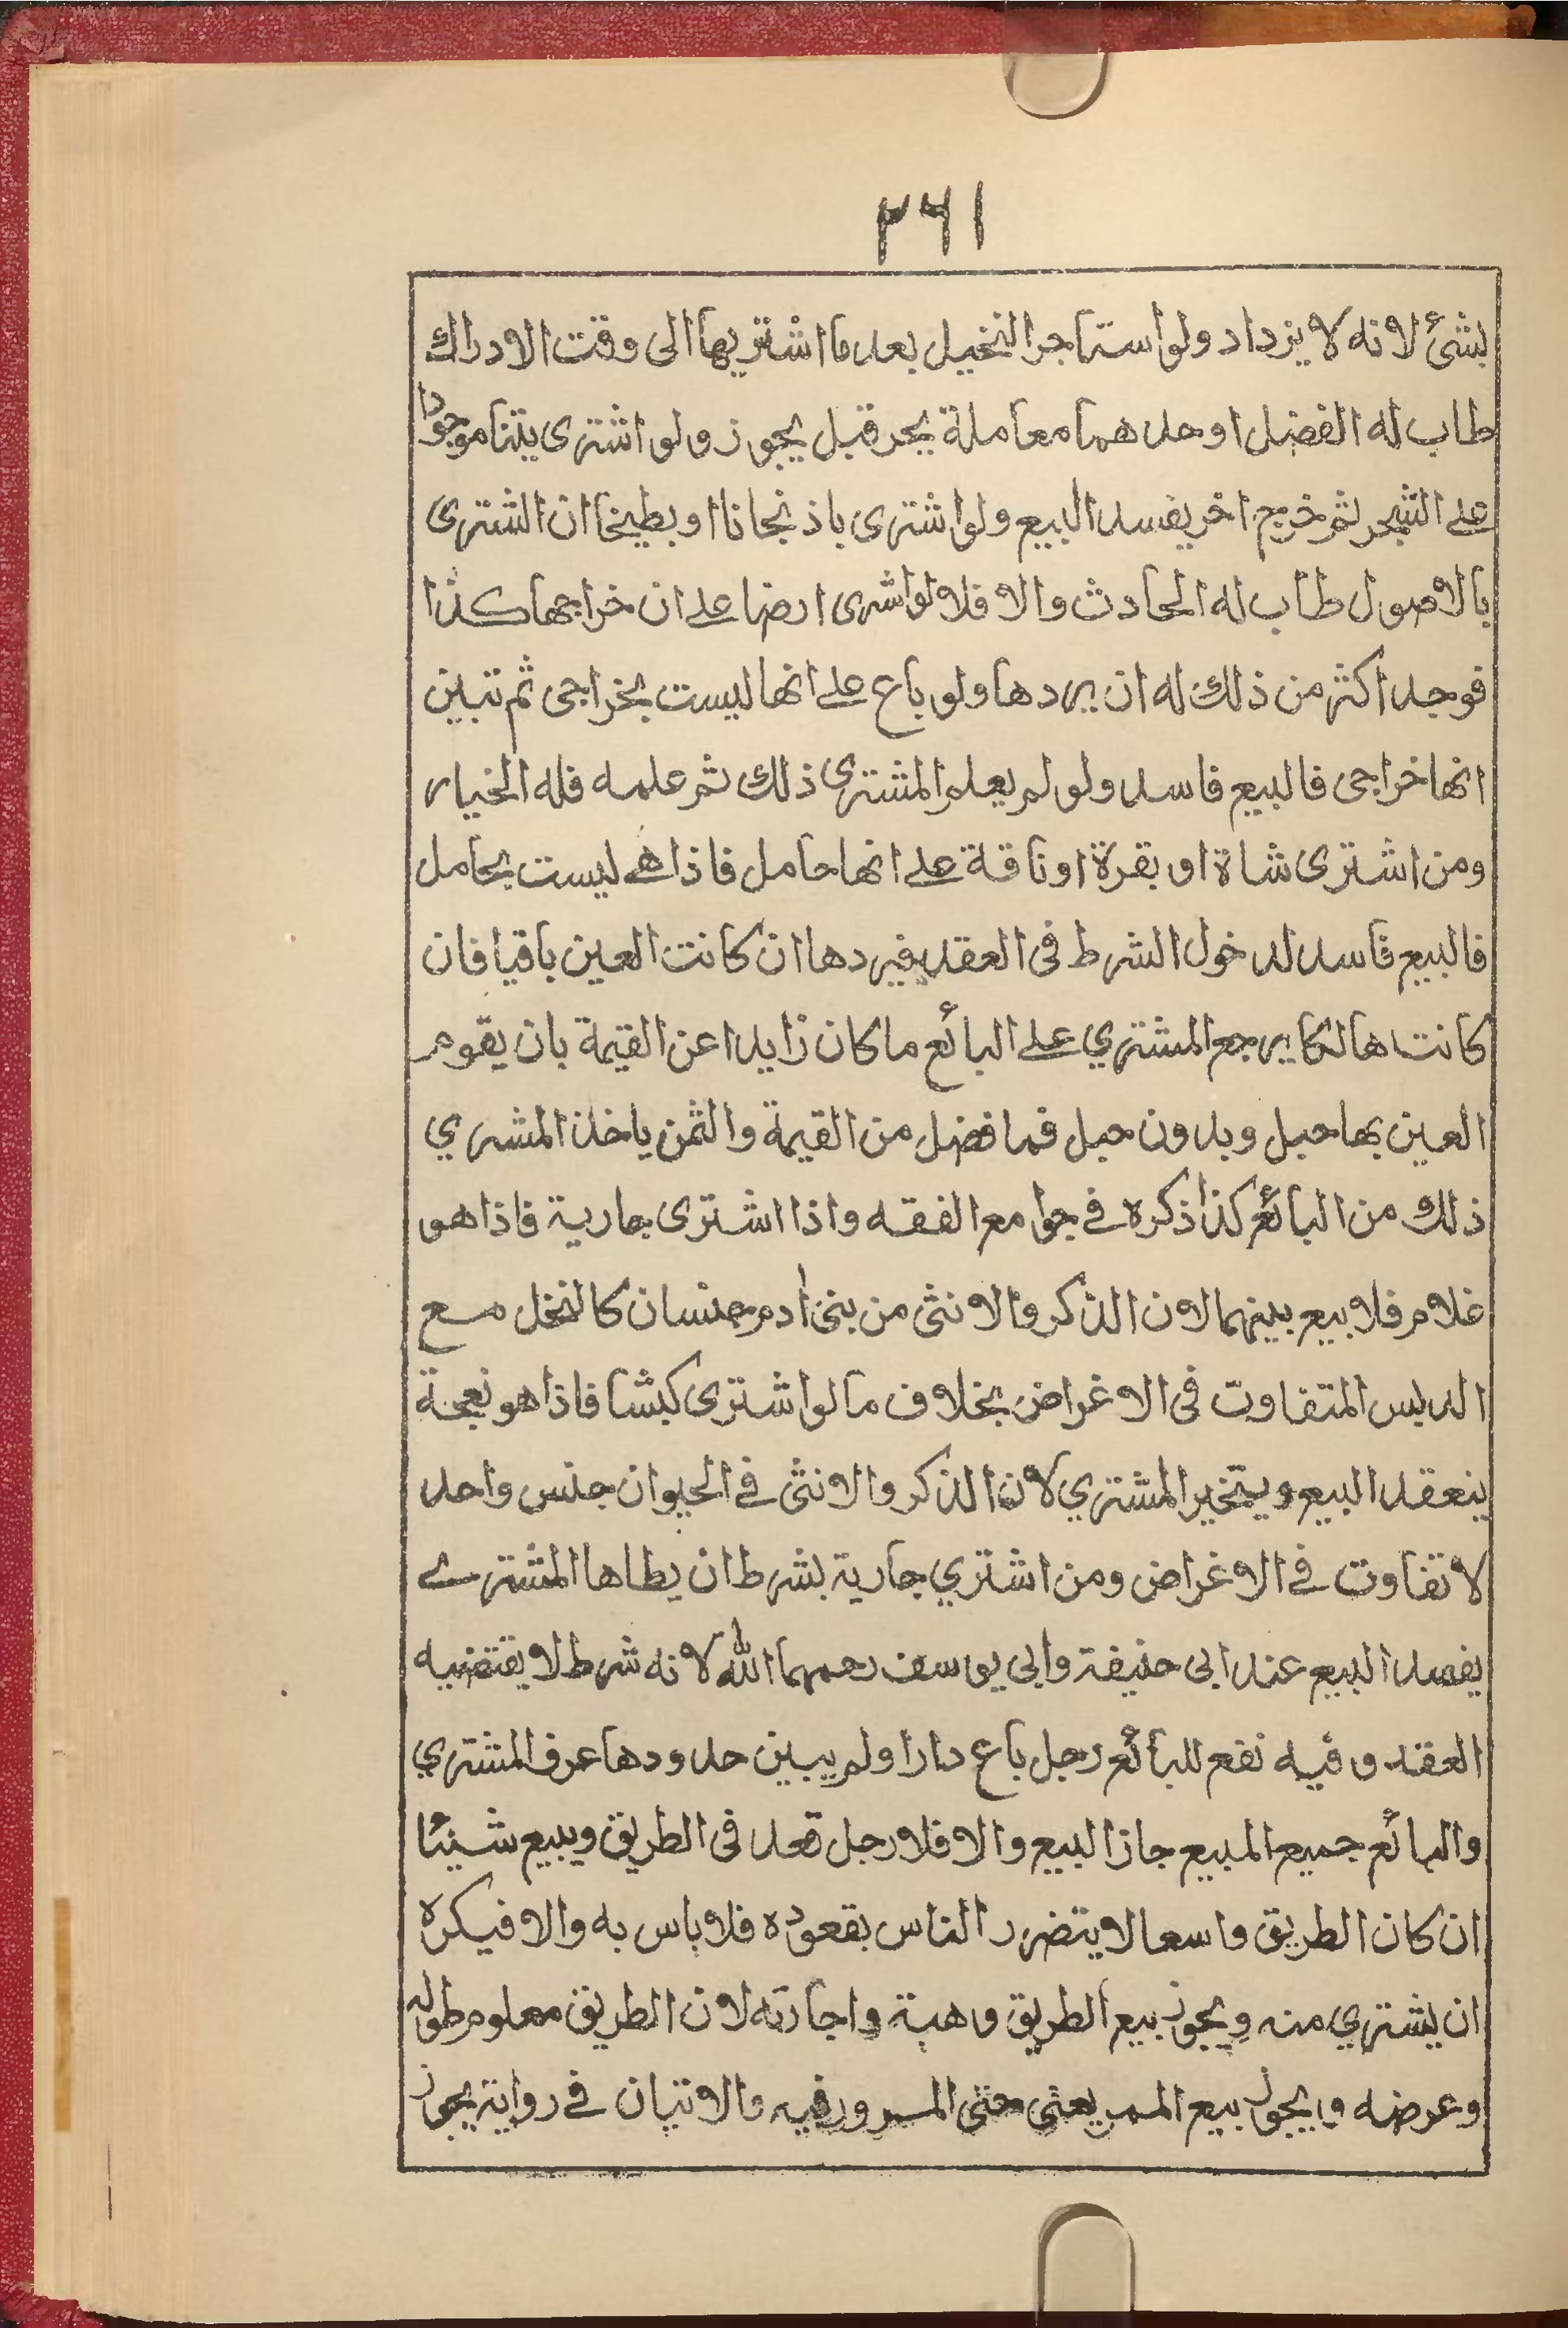 ٢٦١
بشئ لانه لا يزداد ولو استاجر النخيل بعد ما اشتريها الى وقت الادراك
طاب له الفضل او حدهما معاملة يجر قبل يجوز ولو اشترى يتنا موجودا
على الشجر ثم خرج اخر يفسد البيع ولو اشترى باذنجانا او بطيخا ان الشترى
بالاصول طاب له الحادث والا فلا لو اشرى ارضا على ان خراجها كذا
فوجد اكثر من ذلك له ان يردها ولو باع على انها ليست بخراجى ثم تبين
انها خراجى فالبيع فاسد ولو لم يعلم المشترى ذلك ثم علمه فله الخيار
ومن اشترى شاة او بقرة او ناقة على انها حامل فاذا هى ليست بحامل
فالبيع فاسد لدخول الشرط فى العقد فيردها ان كانت العين باقيا فان
كانت هالكا يرجع المشتري على البائع ما كان زايدا عن القيمة بان يقوم
العين بها حبل وبدون حبل فما فضل من القيمة والثمن ياخذ المشري
ذلك من البائع كذا ذكره في جوامع الفقه واذا اشترى جارية فاذا هو
غلام فلا بيع بينهما لان الذكر والانثى من بنى ادم جنسان كالنخل مع
الدبس المتفاوت فى الاغراض بخلاف ما لو اشترى كبشا فاذا هو نعجة
ينعقد البيع ويتخير المشتري لان الذكر والانثى في الحيوان جنس واحد
لا تفاوت في الاغراض ومن اشتري جارية بشرط ان يطاها المشتري
يفسد البيع عند ابى حنيفة وابى يوسف رحمهما الله لانه شرط لا يقتضيه
العقد وفيه نفع للبائع رجل باع دارا ولم يبين حدودها عرف المشتري
والبائع جميع المبيع جاز البيع والا فلا رجل قعد فى الطريق ويبيع شيئا
ان كان الطريق واسعا لا يتضرر الناس بقعوده فلا باس به والا فيكره
ان يشتري منه ويجوز بيع الطريق وهبة واجارته لان الطريق معلوم طوله
وعرضه ويجوز بيع الممر يعنى حتى المرور فيه والاتيان في رواية يجوز